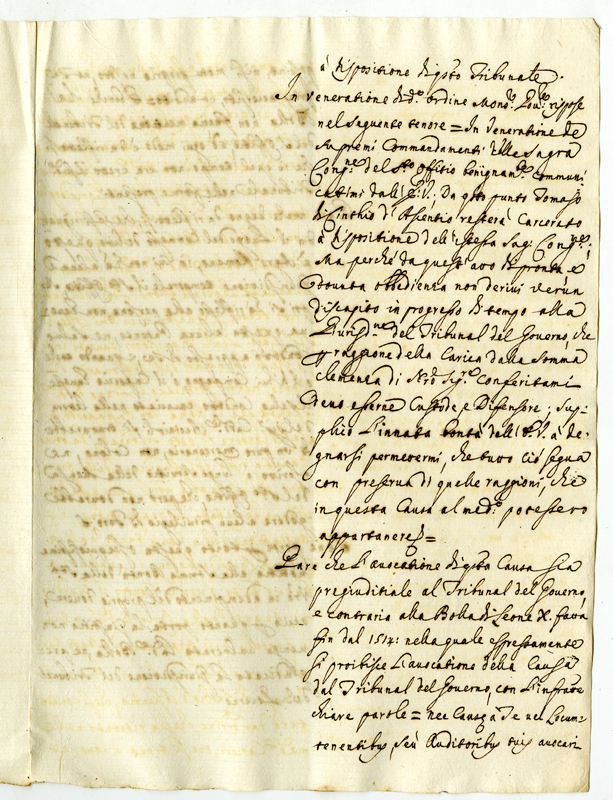 à dispositione di qsto Tribunale.
In veneratione di d.º ordine Mons.r Gov.re rispose
nel seguente tenore = In Veneratione de
supremi Commandamenti della Sagra
Cong.ne del S.to Offitio benignam.te communi
catimi dall'E.V., Da qsto punto Tomaso
di Cinthio d'Assentio resterà Carcerato
à dispositione dell'istessa Sag. Cong.ne;
Ma perche da quest'atto di pronta, e
dovuta obbedienza non derivi verun
discapito in progresso di tempo alla
Giurisd.ne del Tribunal del Governo, che
p raggione della Carica dalla Somma
clemenza di Nro Sig.re Conferitami
devo esserne Custode, e Difensore; Sup-
plico l'innata bontà dell'E.V. à de-
gnarsi permettermi, che tutto ciò segua
con preserva di quelle raggioni, che
in questa Causa al med.º potessero
appartenere =
Pare che l'avocatione di qsta Causa sia
pregiuditiale al Tribunal del Governo,
e contraria alla Bolla di Leone X. fatta
fin dal 1514: nella quale espressamente
si proibisce l'avocatione della Causa
dal Tribunal del Governo, con l'infratte
chiare parole = nec Causa à Te nec Locum-
tenentibus, seù Auditoribus tuis avocari